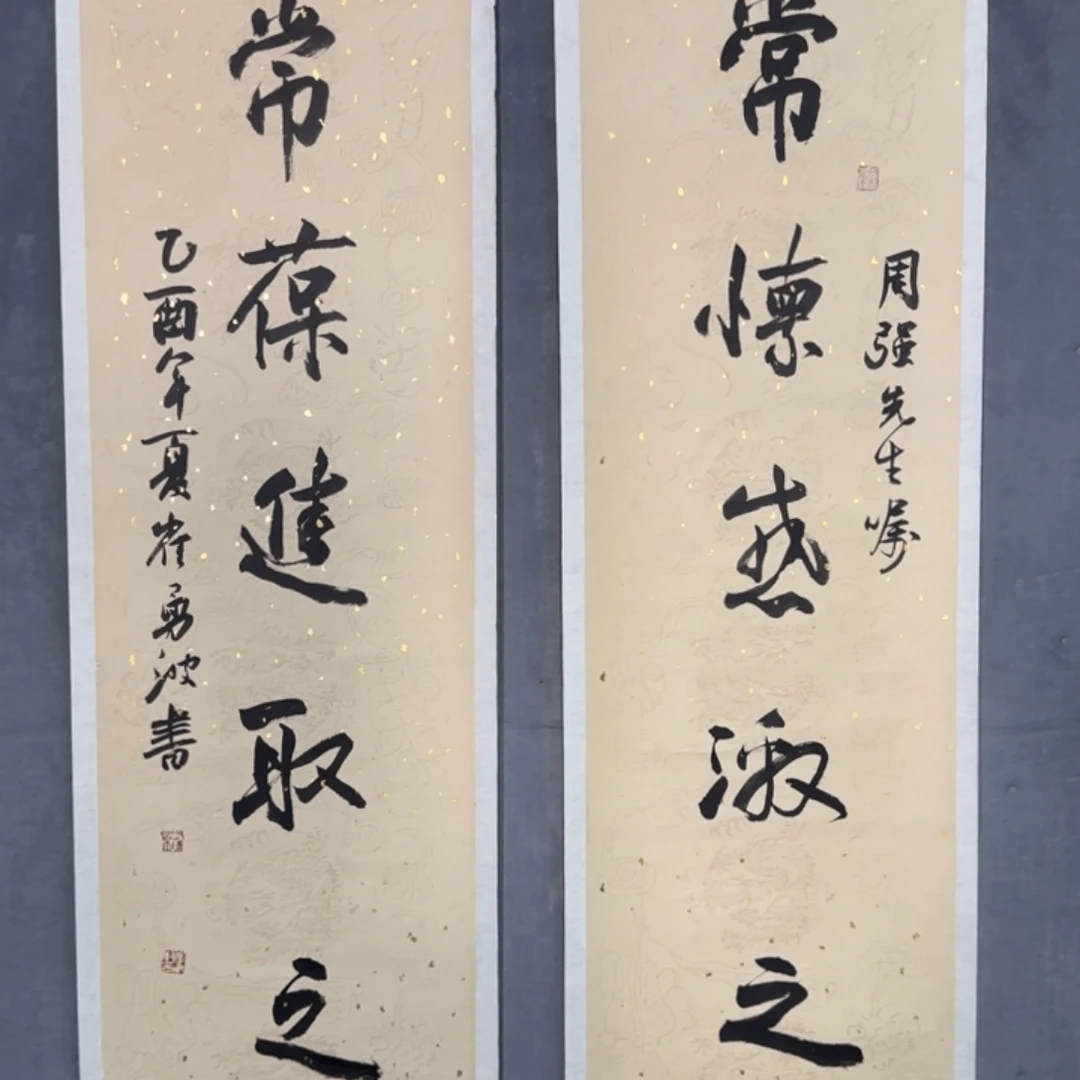 周强先生嘱
常懷感激之
常葆進取之
乙酉年夏崔勇波書